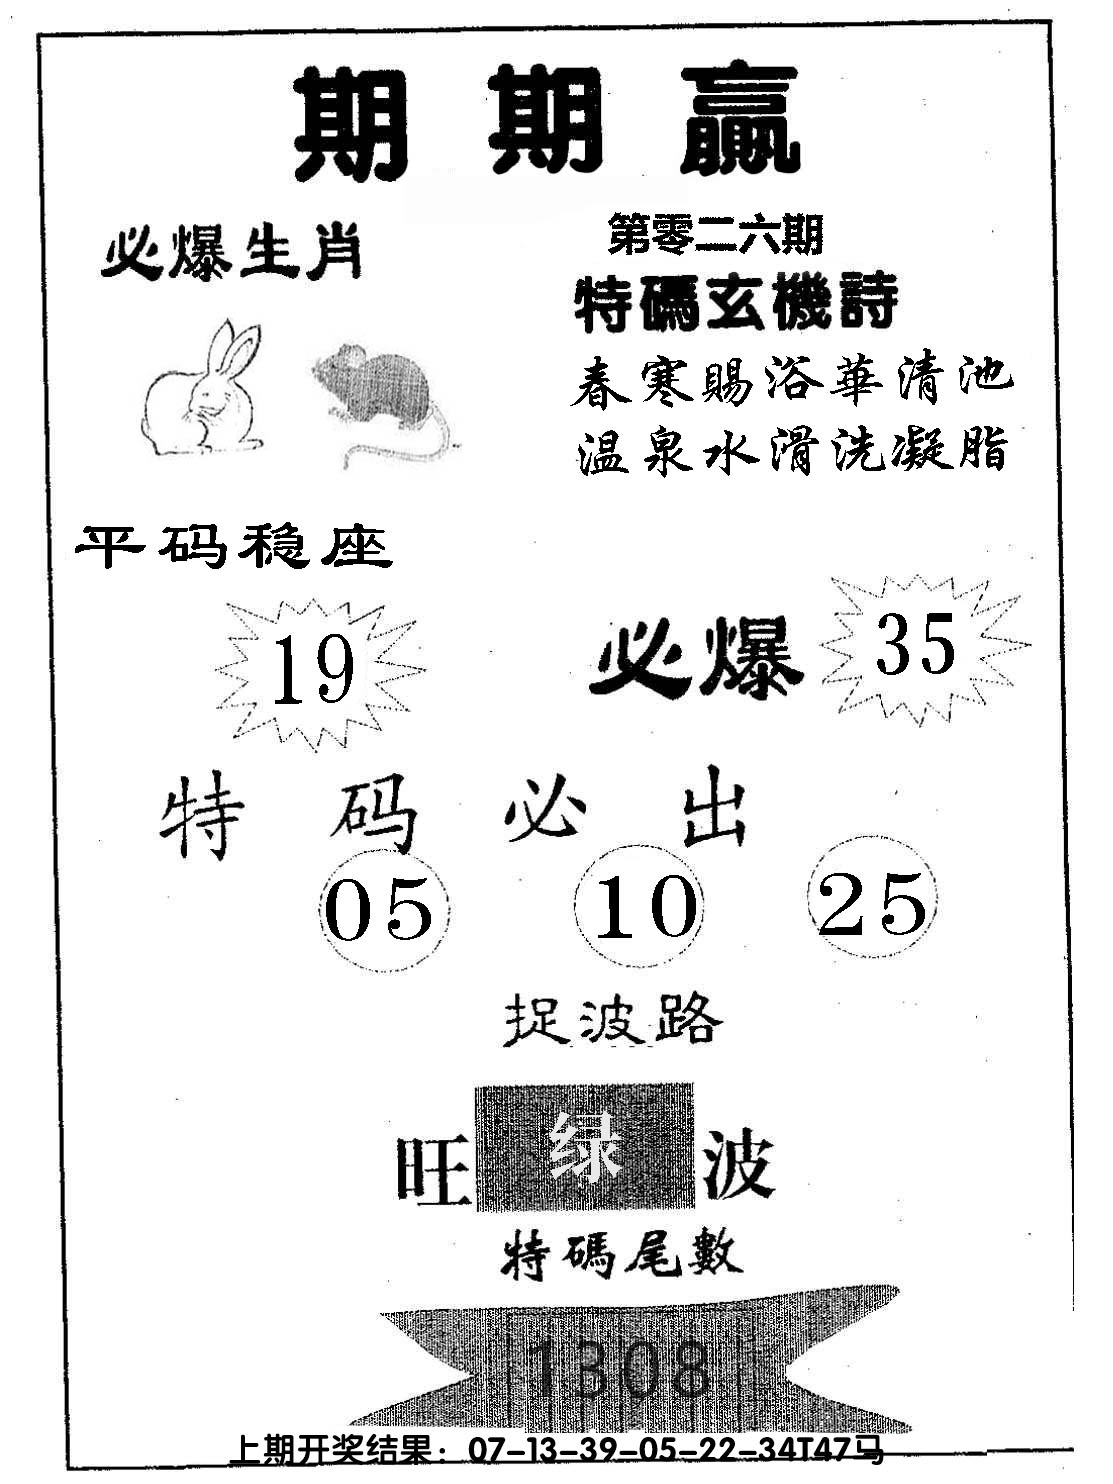 期期赢
必爆生肖
第零二六期
特碼玄機詩
春寒賜浴華清池
温泉水滑洗凝脂
平码稳座
19
必爆
35
特码必出
05 10 25
捉波路
旺绿波
特碼尾數
1308
上期开奖结果：07-13-39-05-22-34T47马